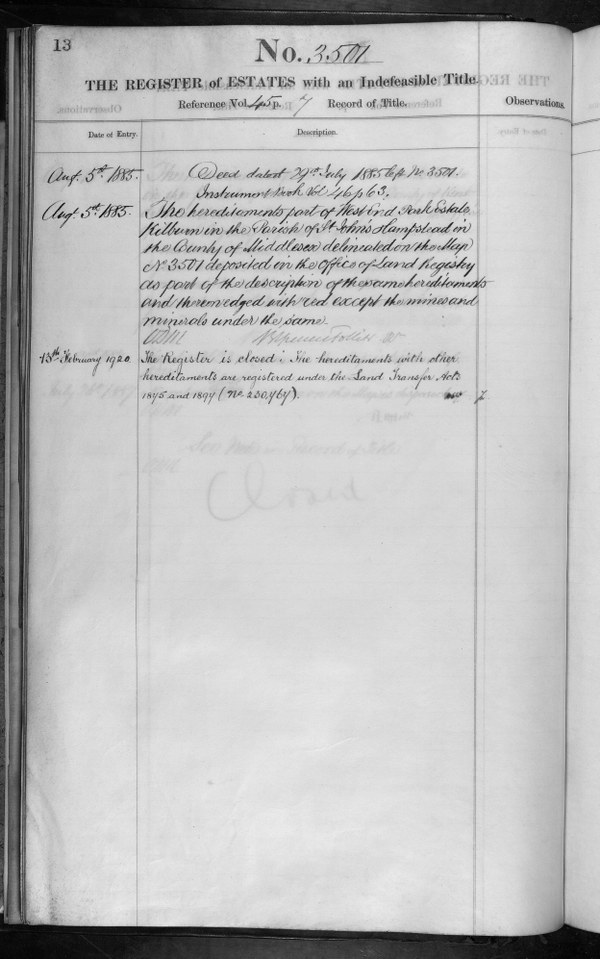 13
No. 3501
THE REGISTER of ESTATES with an Indefeasible Title.
Reference Vol. 45 p. 7 Record of Title.
Observations.
Date of Entry.
Description.
Augt. 5th. 1885. Deed dated July 1885 No 3501.
Instrument Book Vol 46 p 63.
Augt. 5th. 1885. The hereditaments part of West End Park Estate
Kilburn in the Parish of St John's Hampstead in
the County of Middlesex delineated on the Map
No 3501 deposited in the Office of Land Registry
as part of the description of the same hereditaments
and thereon edged with red except the mines and
minerals under the same.
13th February 1920 The Register is closed; The hereditaments with other
hereditaments are registered under the Land Transfer Acts
1875 and 1897 (No. 230,767).
Closed